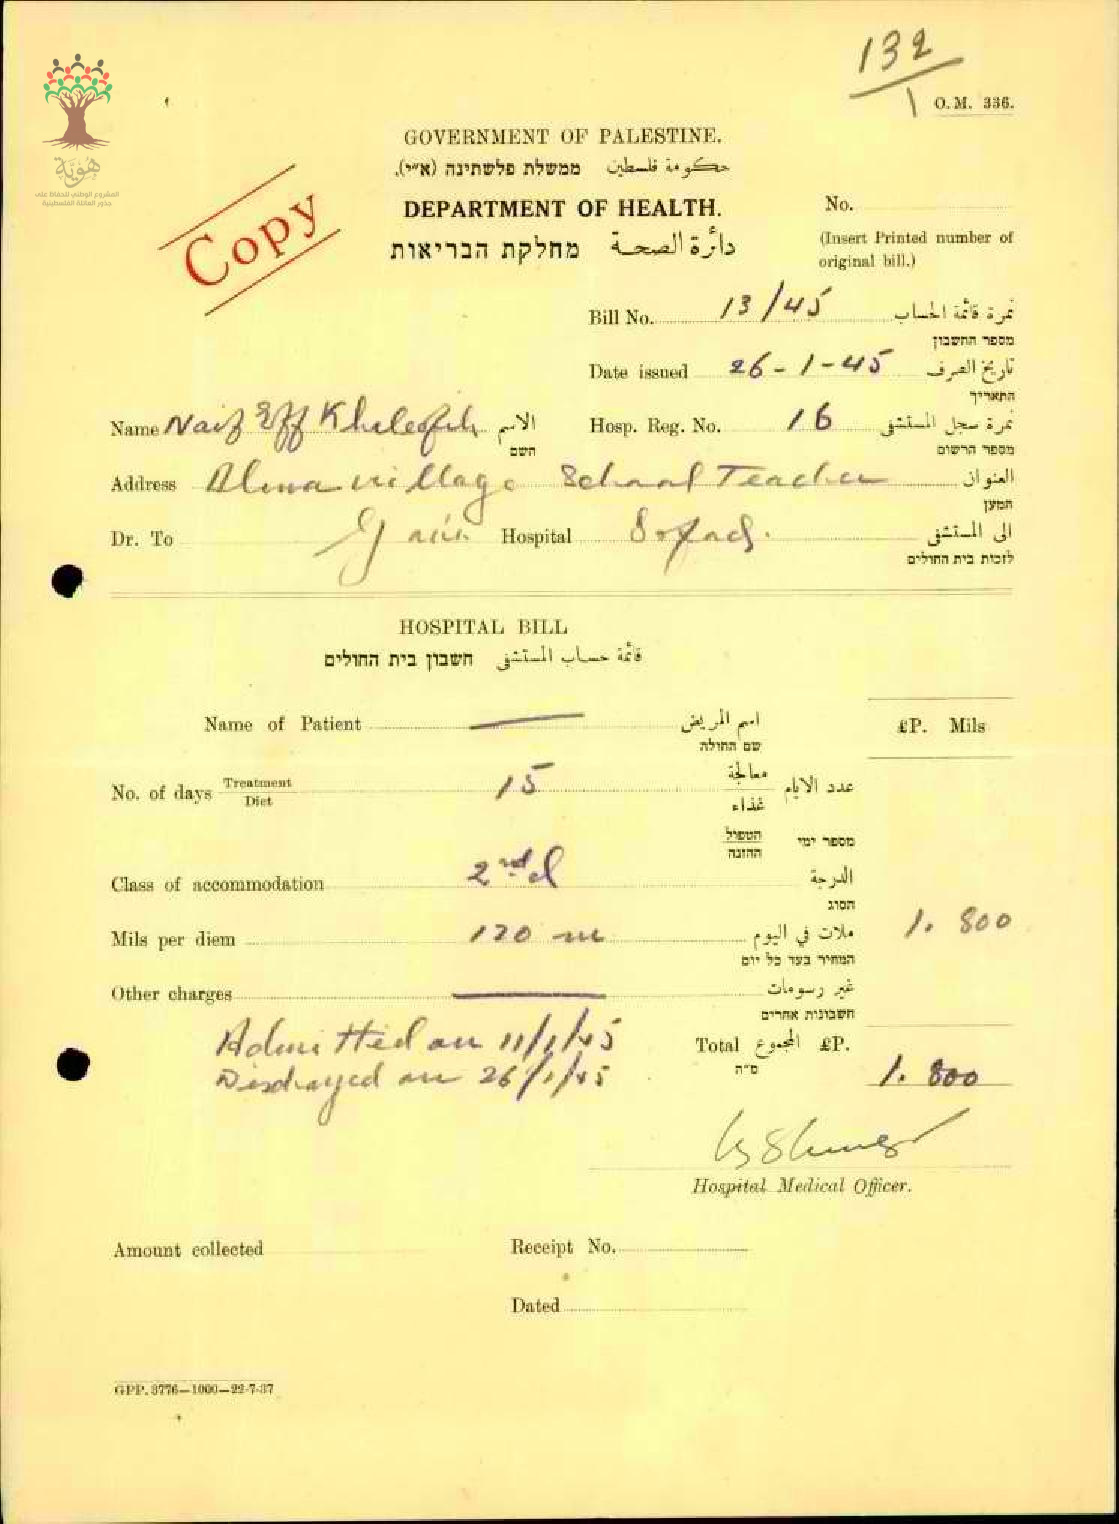 132
1
O.M. 336.
هوية
المشروع الوطني للحفاظ على
جذور العائلة الفلسطينية
GOVERNMENT OF PALESTINE.
حكومة فلسطين ממשלת פלשתינה (א״י).
Copy
DEPARTMENT OF HEALTH.
دائرة الصحة מחלקת הבריאות
No.
(Insert Printed number of
original bill.)
Bill No. 13/45 نمرة قائمة الحساب
מספר החשבון
Date issued 26-1-45 تاريخ الصرف
התאריך
Name Naif Eff الاسم
השם
Hosp. Reg. No. 16 نمرة سجل المستشفى
מספר הרשום
Address Alma village School Teacher العنوان
המען
Dr. To Hospital Safad. الى المستشفى
לזכות בית החולים
HOSPITAL BILL
قائمة حساب المستشفى חשבון בית החולים
Name of Patient — اسم المريض
שם החולה
£P. Mils
No. of days Treatment 15 معالجة عدد الايام
Diet غذاء
הטפול מספר ימי
ההזנה
Class of accommodation 2nd الدرجة
הסוג
Mils per diem 120 m ملات في اليوم 1. 800
המחיר בעד כל יום
Other charges — غير رسومات
חשבונות אחרים
Admitted on 11/1/45
Discharged on 26/1/45
Total المجموع £P. 1. 800
ס״ה
Hospital Medical Officer.
Amount collected
Receipt No.
Dated
GPP. 3776—1000—22-7-37